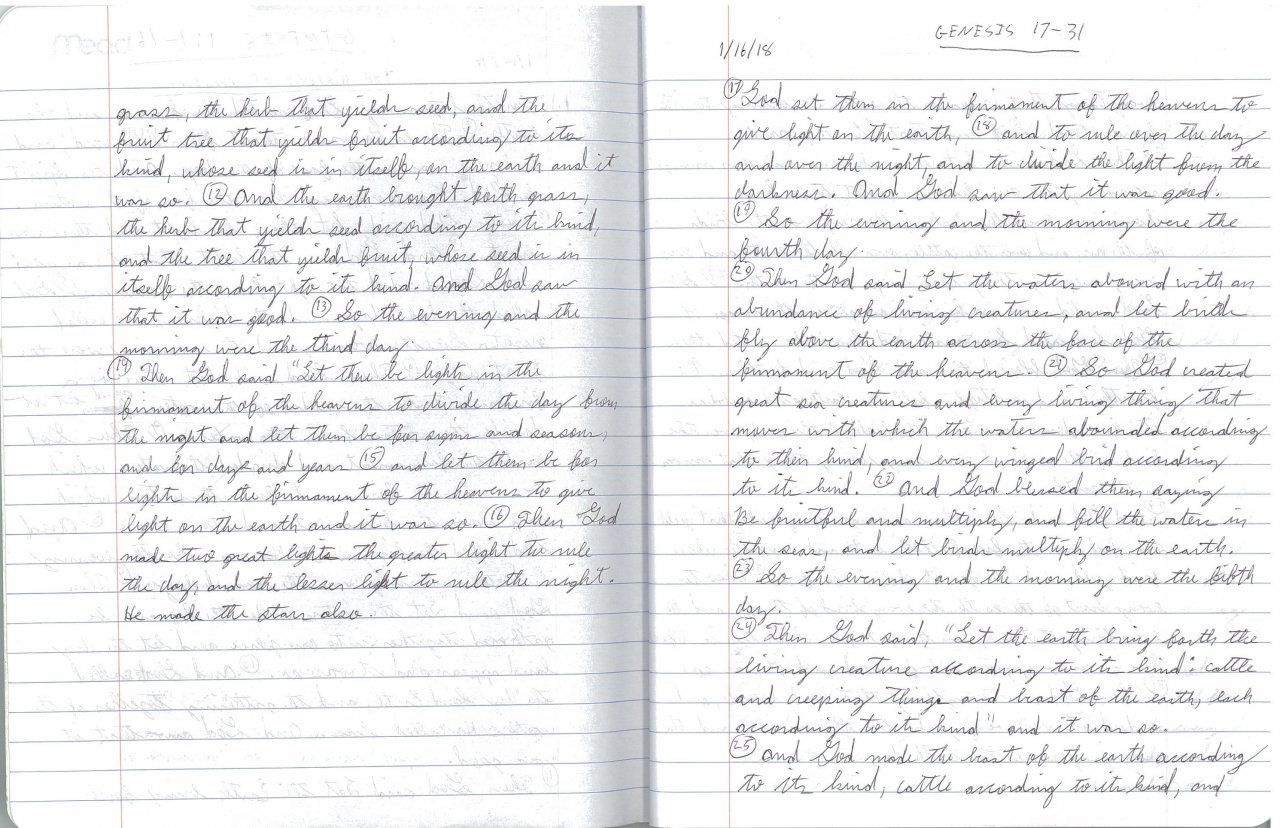 grass, the herb that yields seed, and the
fruit tree that yields fruit according to its
kind, whose seed is in itself, on the earth and it
was so. (12) And the earth brought forth grass,
the herb that yields seed according to its kind,
and the tree that yields fruit, whose seed is in
itself according to its kind. And God saw
that it was good. (13) So the evening and the
morning were the third day.
(14) Then God said "Let there be lights in the
firmament of the heavens to divide the day from
the night and let them be for signs and seasons,
and for days and years (15) and let them be for
lights in the firmament of the heavens to give
light on the earth and it was so. (16) Then God
made two great lights the greater light to rule
the day, and the lesser light to rule the night.
He made the stars also.
GENESIS 17-31
1/16/18
(17) God set them in the firmament of the heavens to
give light on the earth, (18) and to rule over the day
and over the night, and to divide the light from the
darkness. And God saw that it was good.
(19) So the evening and the morning were the
fourth day.
(20) Then God said Let the waters abound with an
abundance of living creatures, and let birds
fly above the earth across the face of the
firmament of the heavens. (21) So God created
great sea creatures and every living thing that
moves with which the waters abounded according
to their kind, and every winged bird according
to its kind. (22) And God blessed them saying
Be fruitful and multiply, and fill the waters in
the seas, and let birds multiply on the earth.
(23) So the evening and the morning were the fifth
day.
(24) Then God said, "Let the earth bring forth the
living creature according to its kind: cattle
and creeping things and beast of the earth, each
according to its kind" and it was so.
(25) And God made the beast of the earth according
to its kind, cattle according to its kind, and